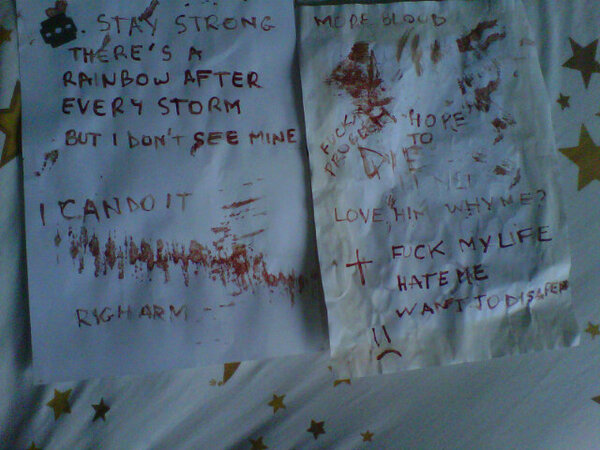 STAY STRONG
THERE'S A
RAINBOW AFTER
EVERY STORM
BUT I DON'T SEE MINE
I CAN DO IT
RIGH ARM
MORE BLOOD
HOPE
TO
DIE
LOVE HIM WHY ME?
FUCK MY LIFE
HATE ME
WANT TO DISAPER